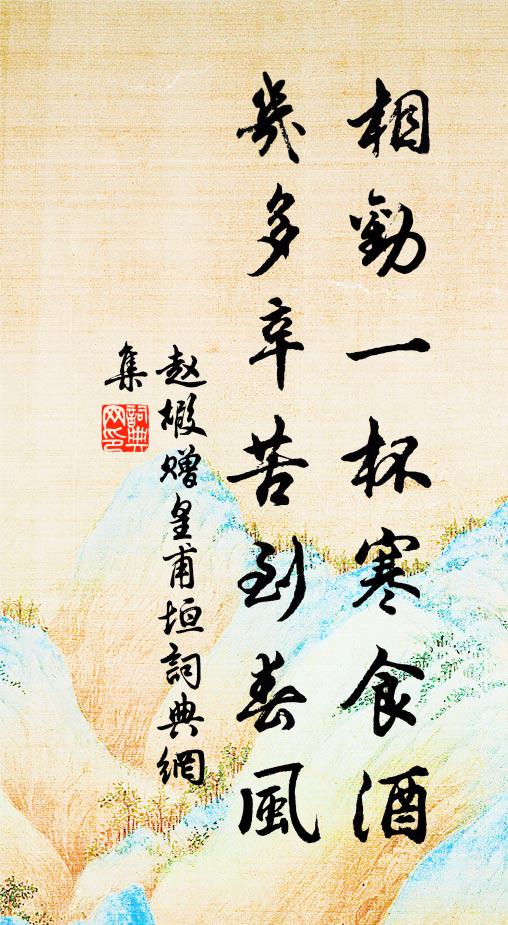 相勸一杯寒食酒
幾多辛苦到春風
赵嘏赠皇甫垣詞典網
集
詞典
网印